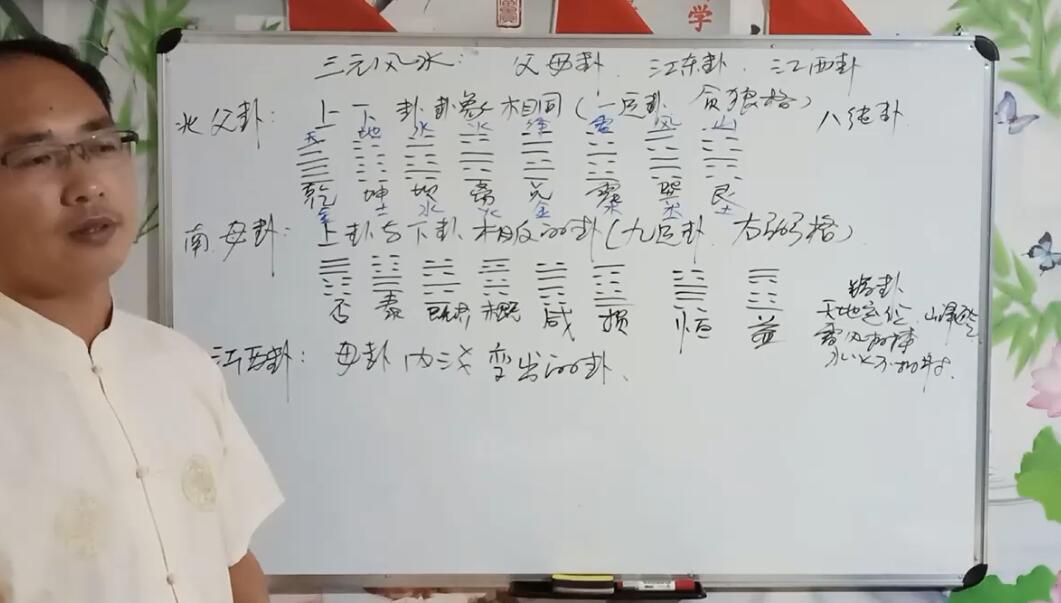 学
三元风水: 父母卦. 江东卦. 江西卦
北 父卦: 上下卦卦象相同(一运卦 贪狼格) 八纯卦
天 地 水 火 泽 雷 风 山
乾 坤 坎 离 兑 震 巽 艮
金 土 水 火 金 木 木 土
南 母卦: 上卦与下卦相反的卦(九运卦 右弼格)
否 泰 既济 未济 咸 损 恒 益
天地定位. 山泽通气
雷风相薄
水火不相射.
江西卦: 母卦内三爻变出的卦.